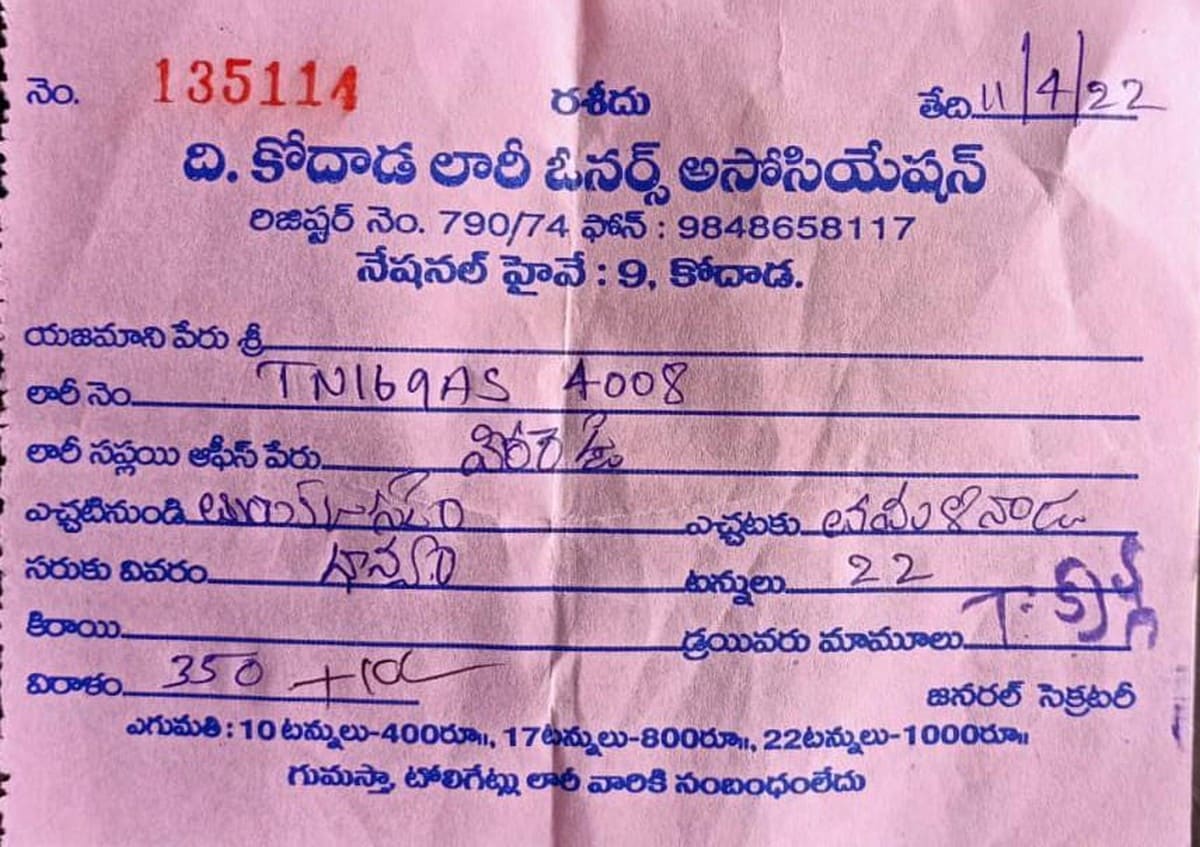 నెం. 135114 రశీదు తేది. 11/4/22
ది. కోదాడ లారీ ఓనర్స్ అసోసియేషన్
రిజిష్టర్ నెం. 790/74 ఫోన్ : 9848658117
నేషనల్ హైవే : 9, కోదాడ.
యజమాని పేరు శ్రీ
లారీ నెం. TN169AS 4008
లారీ సప్లయి ఆఫీస్ పేరు
ఎచ్చటినుండి ఎచ్చటకు
సరుకు వివరం ధాన్యం టన్నులు 22
కిరాయి డ్రయివరు మామూలు
విరాళం 350
జనరల్ సెక్రటరీ
ఎగుమతి : 10 టన్నులు-400రూ॥, 17టన్నులు-800రూ॥, 22టన్నులు-1000రూ॥
గుమస్తా, టోలిగేట్లు లారీ వారికి సంబంధంలేదు